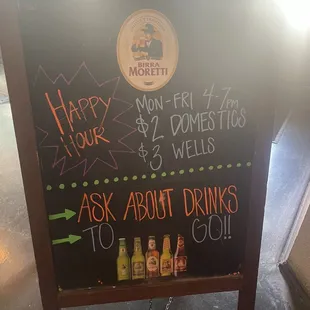 BIRRA
MORETTI
HAPPY HOUR
MON-FRI 4-7PM
$2 DOMESTICS
$3 WELLS
ASK ABOUT DRINKS
TO GO!!